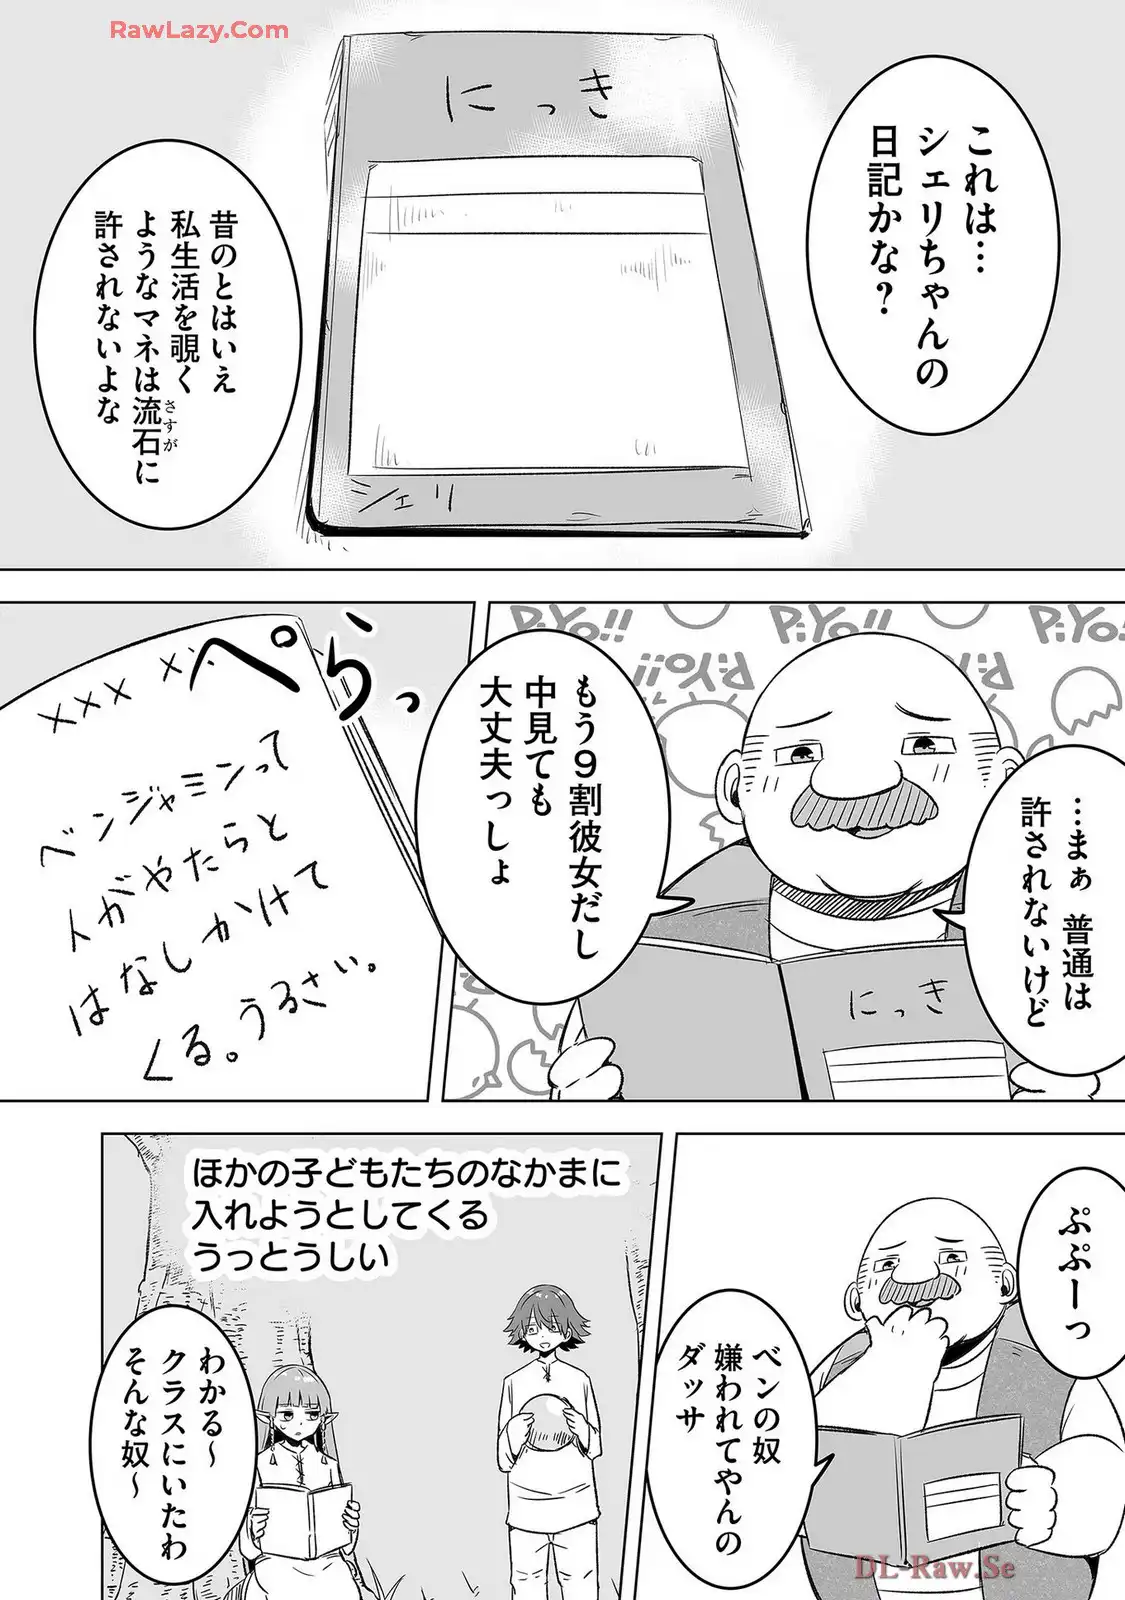 RawLazy.Com
にっき
シェリ
これは…
シェリちゃんの
日記かな?
昔のとはいえ
私生活を覗く
ようなマネは流石に
さすが
許されないよな
PiYo!!
PiYo!!
PiYo!!
PiYo!!
PiYo!!
…まぁ 普通は
許されないけど
もう9割彼女だし
中見ても
大丈夫っしょ
にっき
ぺらっ
××× ×
ベンジャミンって
人がやたらと
はなしかけて
くる。うるさい。
ぷぷーっ
ベンの奴
嫌われてやんの
ダッサ
ほかの子どもたちのなかまに
入れようとしてくる
うっとうしい
わかる~
クラスにいたわ
そんな奴~
DL-Raw.Se